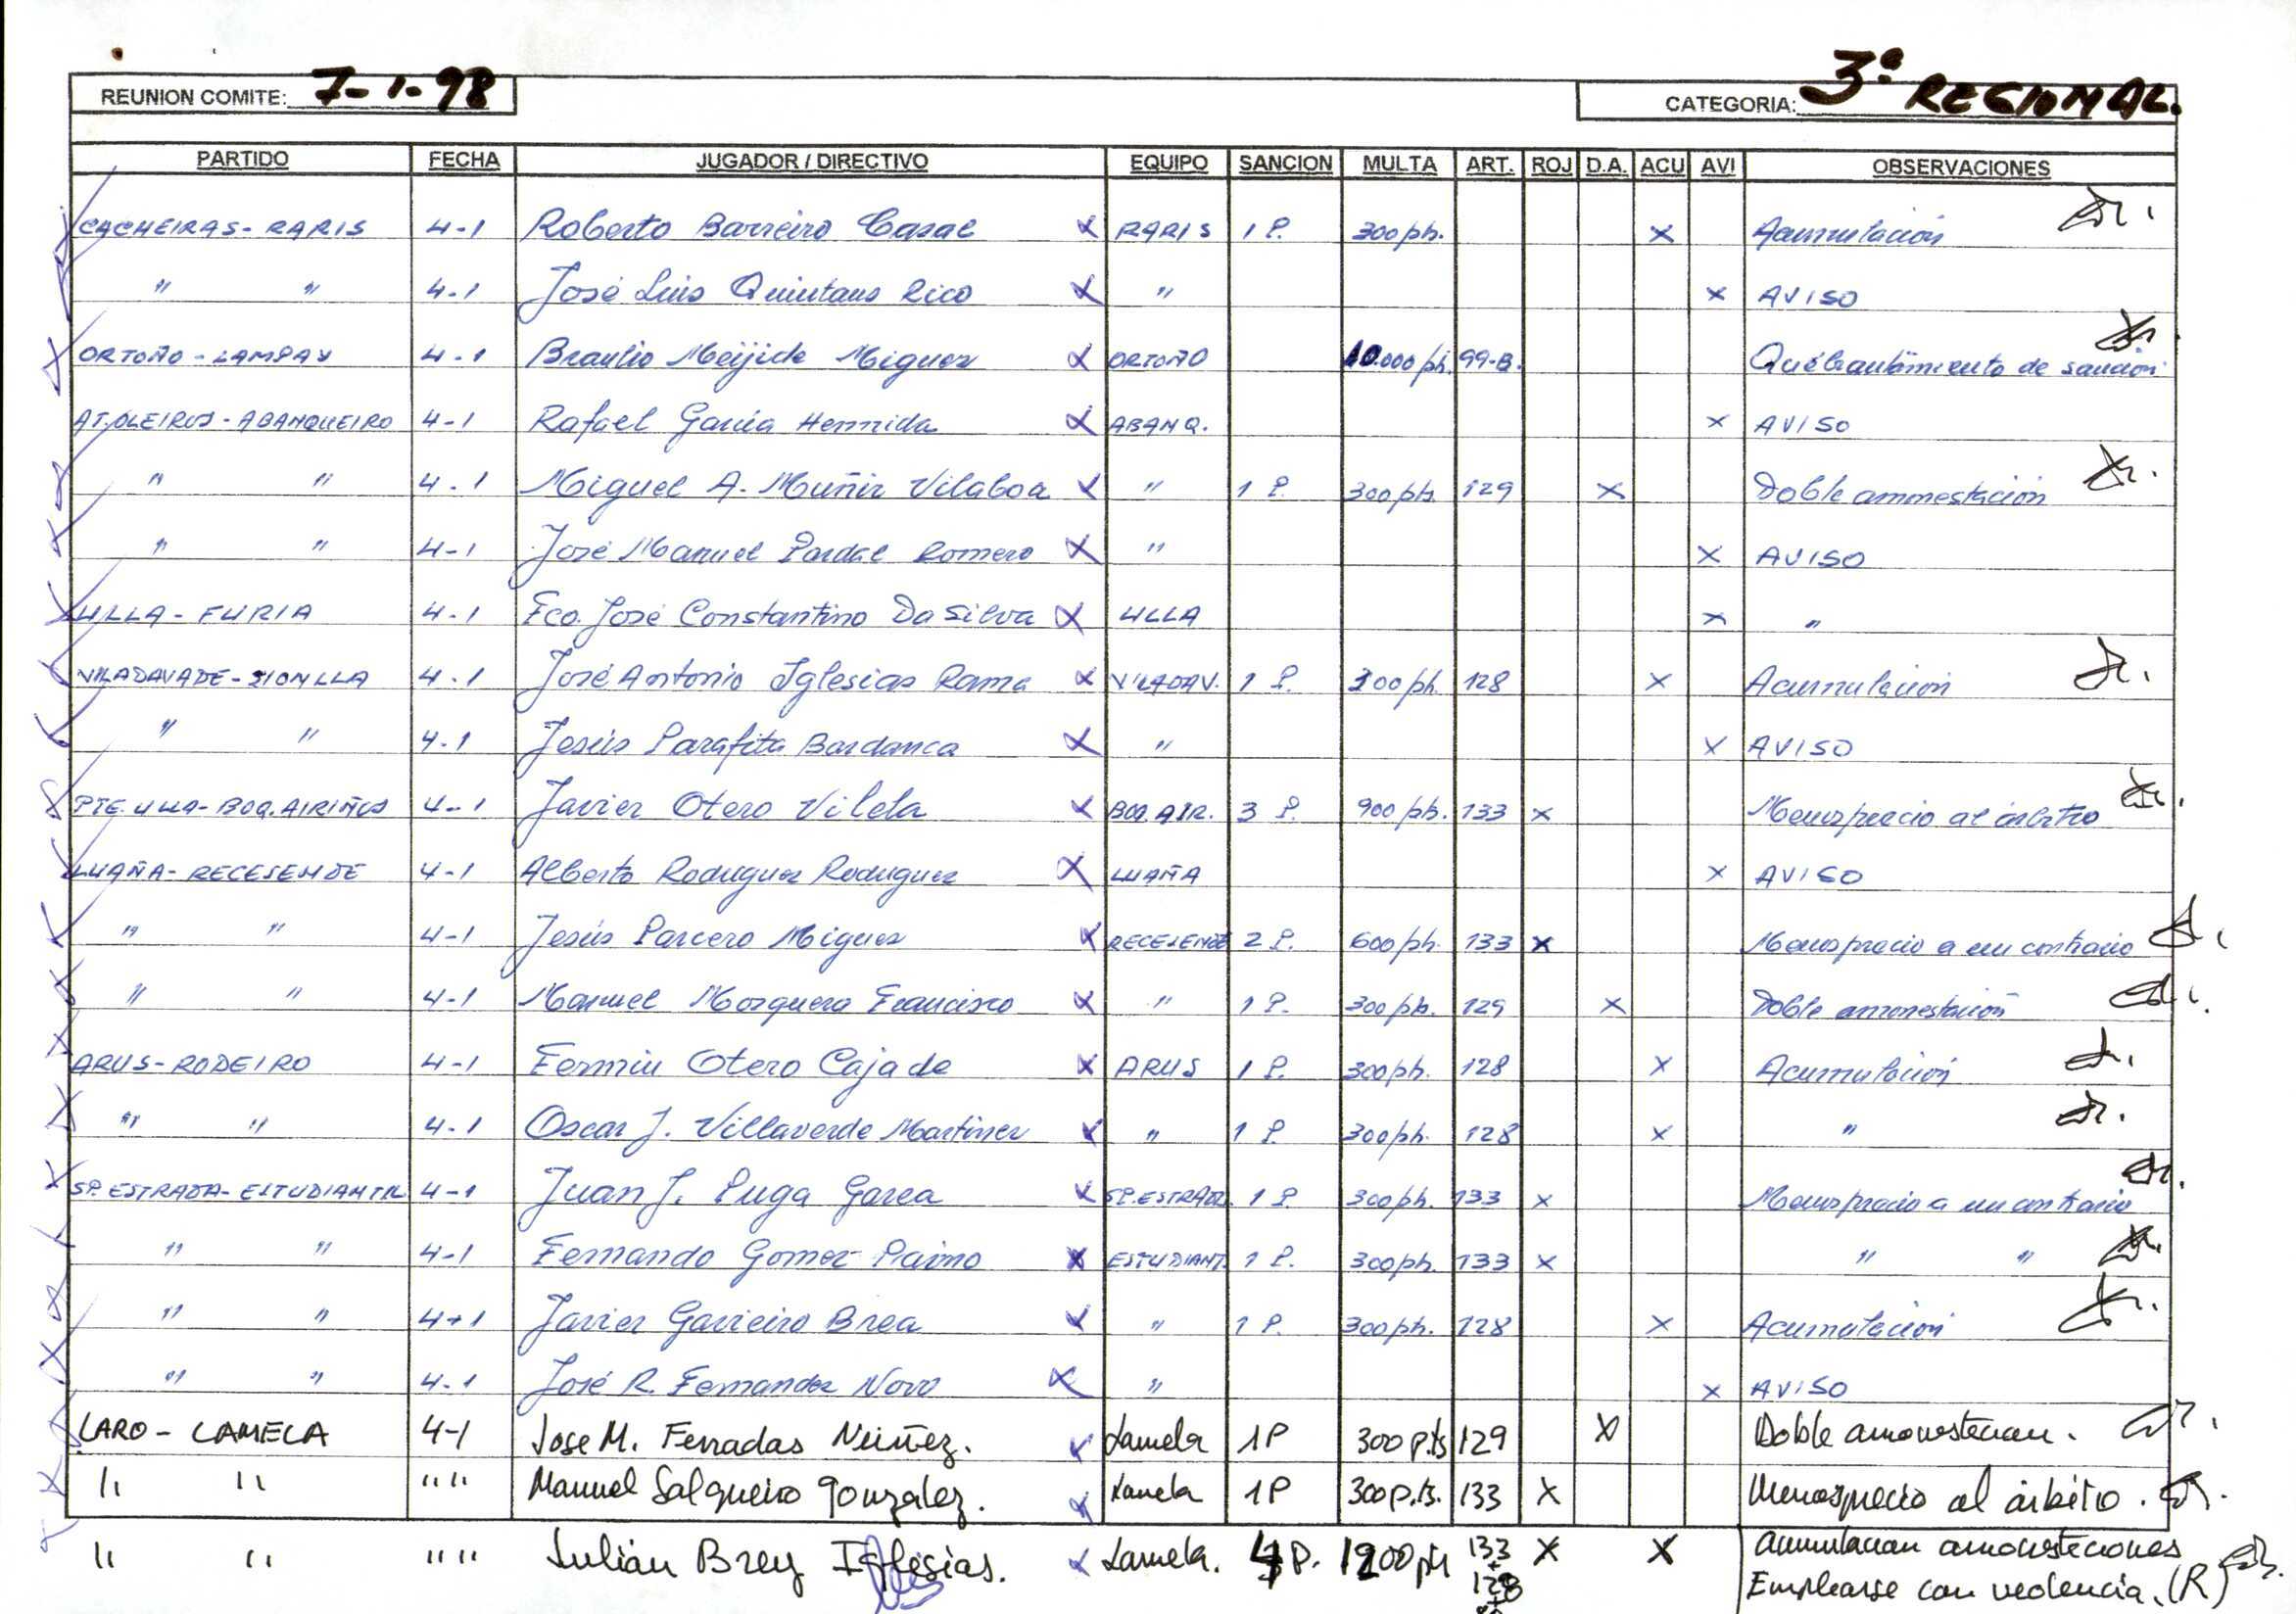 REUNION COMITE: 7-1-98 CATEGORIA: 3ª REGIONAL.
PARTIDO FECHA JUGADOR / DIRECTIVO EQUIPO SANCION MULTA ART. ROJ D.A. ACU AVI OBSERVACIONES
CACHEIRAS - RARIS 4-1 Roberto Barreiro Casal x RARIS 1 P. 300 pts. x Acumulación
" " 4-1 José Luis Quintans Rico x " x AVISO
ORTOÑO - LAMPAY 4-1 Braulio Meijide Miguez x ORTOÑO 10.000 pts. 99-B. Quebrantamiento de sanción
AT. OLEIROS - ABANQUEIRO 4-1 Rafael García Hermida x ABANQ. x AVISO
" " 4-1 Miguel A. Muñiz Vilaboa x " 1 P. 300 pts. 129 x Doble amonestación
" " 4-1 José Manuel Pardal Romero x " x AVISO
ULLA - FURIA 4-1 Fco. José Constantino Da Silva x ULLA x "
VILADAVADE - SIONLLA 4-1 José Antonio Iglesias Rama x VILADAV. 1 P. 300 pts. 128 x Acumulación
" " 4-1 Jesús Parafita Bardanca x " x AVISO
PTE. ULLA - BOQ. AIRIÑOS 4-1 Javier Otero Vilela x BOQ. AIR. 3 P. 900 pts. 133 x Menosprecio al árbitro
LUAÑA - RECESENDE 4-1 Alberto Rodriguez Rodriguez x LUAÑA x AVISO
" " 4-1 Jesús Parcero Miguez x RECESENDE 2 P. 600 pts. 133 x Menosprecio a un contrario
" " 4-1 Manuel Mosquera Francisco x " 1 P. 300 pts. 129 x Doble amonestación
ARUS - RODEIRO 4-1 Fermin Otero Cajade x ARUS 1 P. 300 pts. 128 x Acumulación
" " 4-1 Oscar J. Villaverde Martinez x " 1 P. 300 pts. 128 x "
SP. ESTRADA - ESTUDIANTIL 4-1 Juan J. Puga Garea x SP. ESTRADA 1 P. 300 pts. 133 x Menosprecio a un contrario
" " 4-1 Fernando Gomez x ESTUDIANT. 1 P. 300 pts. 133 x " "
" " 4-1 Javier Gavieiro Brea x " 1 P. 300 pts. 128 x Acumulación
" " 4-1 José R. Fernandez Novo x " x AVISO
LARO - LAMELA 4-1 Jose M. Ferradas Núñez. x Lamela 1P 300 pts 129 x Doble amonestacion.
" " " " Manuel Salgueiro González. x Lamela 1P 300 pts. 133 x Menosprecio al árbito.
" " " " Julián Brey Iglesias. x Lamela. 4 P. 1200 pts 133 + 128 x x Acumulacion amonestaciones
Emplearse con veolencia. (R)